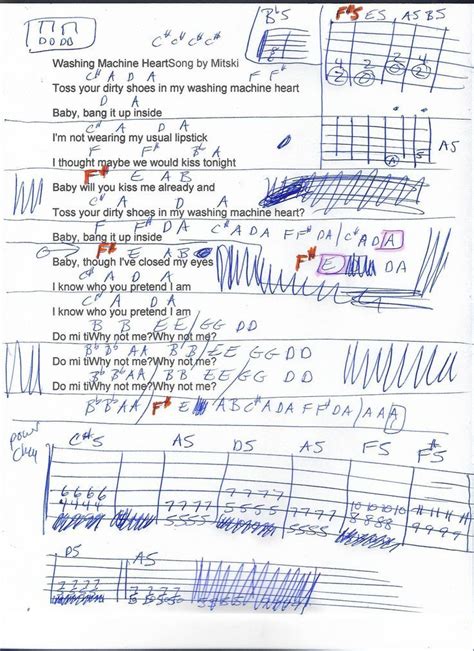 B♭5 F#5 E5 A5 B5
D D D D C# C# C# C#
Washing Machine HeartSong by Mitski
C# A D A F F#
Toss your dirty shoes in my washing machine heart
D A
Baby, bang it up inside
C# A D A
I'm not wearing my usual lipstick
A5
F F# B♭ A
I thought maybe we would kiss tonight
F# E A B
Baby will you kiss me already and
C# A D A
Toss your dirty shoes in my washing machine heart?
F F# D A C# A D A F F# D A / C# A D A
Baby, bang it up inside
F# F# E D A
Baby, though I've closed my eyes
C# A D A
I know who you pretend I am
I know who you pretend I am
B B E E / G G D D
Do mi tiWhy not me?Why not me?
B♭ B♭ A A / B B / E E G G D D
Do mi tiWhy not me?Why not me?
B♭ B♭ A A / B B / E E G G D D
Do mi tiWhy not me?Why not me?
B♭ B♭ A A / F# E A B C# A D A F F# D A / A A A
power
C#5 A5 D5 A5 F5 F#5
6 6 6 6 7 7 7 7 10 10 10 10 11 11 11 11
4 4 4 4 7 7 7 7 5 5 5 5 5 5 5 5 7 7 7 7 8 8 8 8 9 9 9 9
5 5 5 5
D5 A5
7 7 7 7 7 7 7 7